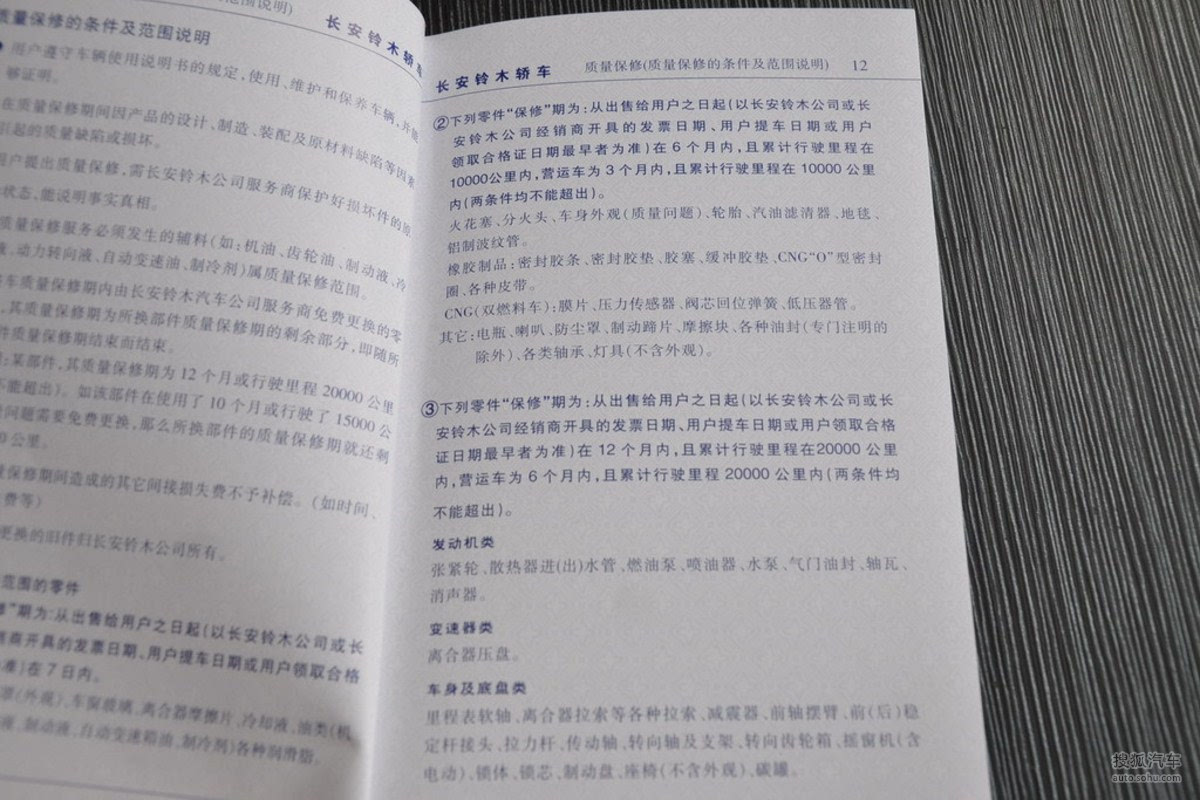 范围说明)
长安铃木轿车
质量保修的条件及范围说明
用户遵守车辆使用说明书的规定,使用、维护和保养车辆,并能
够证明。
在质量保修期间因产品的设计、制造、装配及原材料缺陷等因素
引起的质量缺陷或损坏。
用户提出质量保修,需长安铃木公司服务商保护好损坏件的原
状态,能说明事实真相。
质量保修服务必须发生的辅料(如:机油、齿轮油、制动液、冷
液,动力转向液、自动变速油、制冷剂)属质量保修范围。
车质量保修期内由长安铃木汽车公司服务商免费更换的零
,其质量保修期为所换部件质量保修期的剩余部分,即随所
件质量保修期结束而结束。
:某部件,其质量保修期为12个月或行驶里程20000公里
不能超出)。如该部件在使用了10个月或行驶了15000公
问题需要免费更换,那么所换部件的质量保修期就还剩
公里。
量保修期间造成的其它间接损失费不予补偿。(如时间、
费等)
更换的旧件归长安铃木公司所有。
范围的零件
修”期为:从出售给用户之日起(以长安铃木公司或长
销商开具的发票日期、用户提车日期或用户领取合格
准)在7日内。
罩(外观)、车窗玻璃、离合器摩擦片、冷却液,油类(机
液,制动液,自动变速箱油,制冷剂)各种润滑脂。
长安铃木轿车 质量保修(质量保修的条件及范围说明) 12
②下列零件“保修”期为:从出售给用户之日起(以长安铃木公司或长
安铃木公司经销商开具的发票日期、用户提车日期或用户
领取合格证日期最早者为准)在6个月内,且累计行驶里程在
10000公里内,营运车为3个月内,且累计行驶里程在10000公里
内(两条件均不能超出)。
火花塞、分火头、车身外观(质量问题)、轮胎、汽油滤清器、地毯、
铝制波纹管。
橡胶制品:密封胶条、密封胶垫、胶塞、缓冲胶垫、CNG“O”型密封
圈、各种皮带。
CNG(双燃料车):膜片、压力传感器、阀芯回位弹簧、低压器管。
其它:电瓶、喇叭、防尘罩、制动蹄片、摩擦块、各种油封(专门注明的
除外)、各类轴承、灯具(不含外观)。
③下列零件“保修”期为:从出售给用户之日起(以长安铃木公司或长
安铃木公司经销商开具的发票日期、用户提车日期或用户领取合格
证日期最早者为准)在12个月内,且累计行驶里程在20000公里
内,营运车为6个月内,且累计行驶里程20000公里内(两条件均
不能超出)。
发动机类
张紧轮、散热器进(出)水管、燃油泵、喷油器、水泵、气门油封、轴瓦、
消声器。
变速器类
离合器压盘。
车身及底盘类
里程表软轴、离合器拉索等各种拉索、减震器、前轴摆臂、前(后)稳
定杆接头、拉力杆、传动轴、转向轴及支架、转向齿轮箱、摇窗机(含
电动)、锁体、锁芯、制动盘、座椅(不含外观)、碳罐。
搜狐汽车
auto.sohu.com